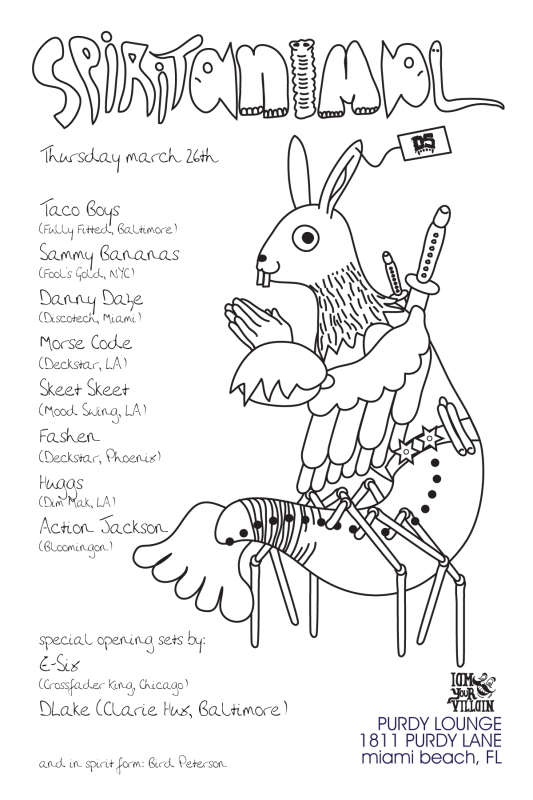 SPIRIT ANIMAL
Thursday march 26th
DS
Taco Boys
(Fully Fitted, Baltimore)
Sammy Bananas
(Fool's Gold, NYC)
Danny Daze
(Discotech, Miami)
Morse Code
(Deckstar, LA)
Skeet Skeet
(Mood Swing, LA)
Fashen
(Deckstar, Phoenix)
Huggs
(Dim Mak, LA)
Action Jackson
(Bloomingon)
special opening sets by:
E-Six
(Crossfader King, Chicago)
DLake (Clarie Hux, Baltimore)
and in spirit form: Bird Peterson
IAM
YOUR
VILLAIN
PURDY LOUNGE
1811 PURDY LANE
miami beach, FL